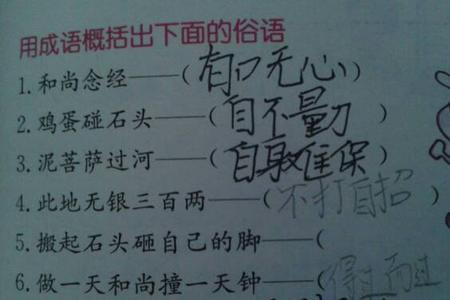 用成语概括出下面的俗语
1.和尚念经——(有口无心)
2.鸡蛋碰石头——(自不量力)
3.泥菩萨过河——(自身难保)
4.此地无银三百两——(不打自招)
5.搬起石头砸自己的脚——(
6.做一天和尚撞一天钟——(得过而过